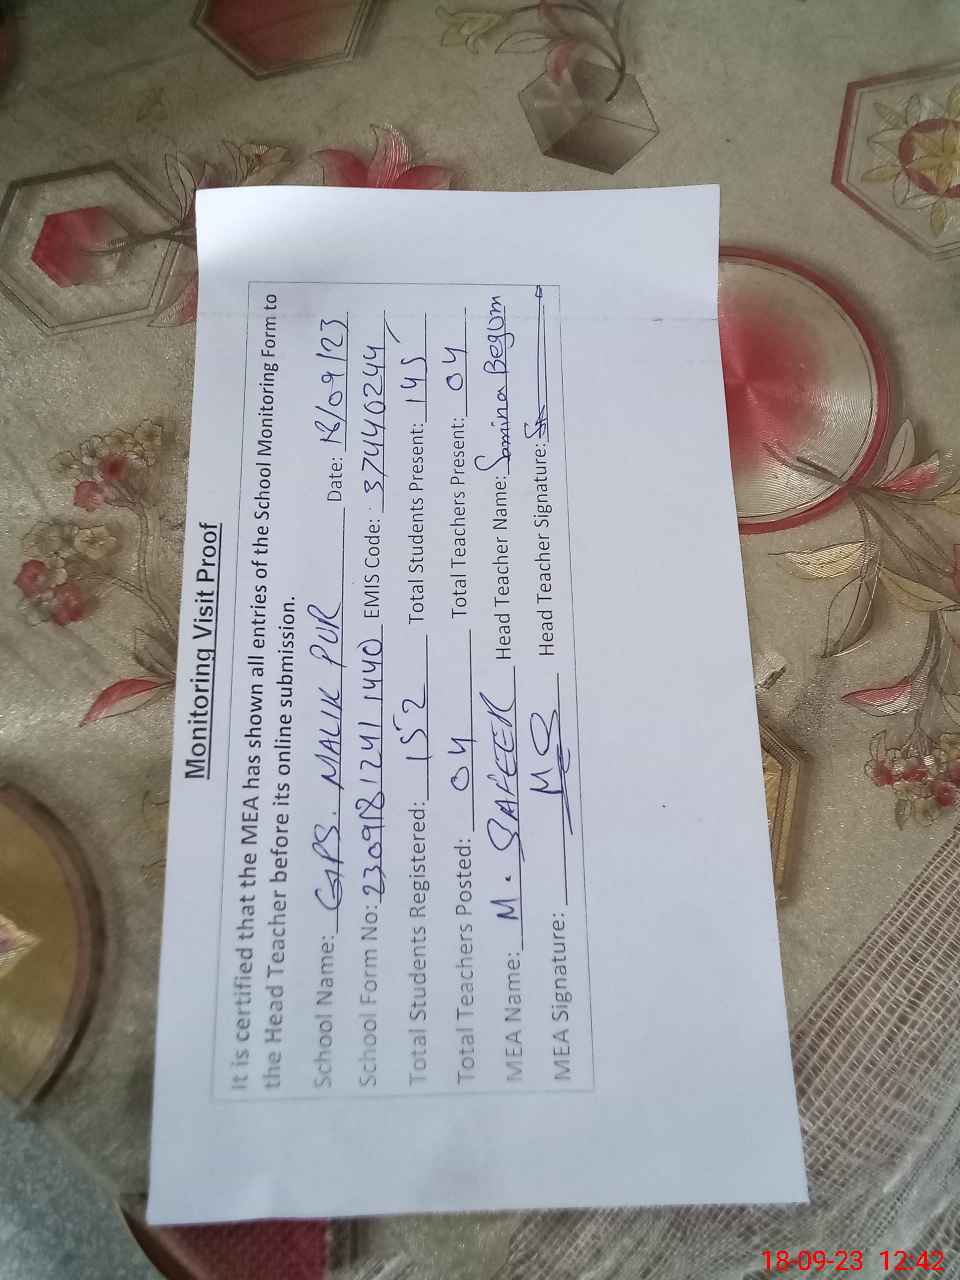 Monitoring Visit Proof
It is certified that the MEA has shown all entries of the School Monitoring Form to
the Head Teacher before its online submission.
School Name: GPS. MALIK PUR Date: 18/09/23
School Form No: 2309181241 1440 EMIS Code: 37440244
Total Students Registered: 152 Total Students Present: 145
Total Teachers Posted: 04 Total Teachers Present: 04
MEA Name: M. SAFEER Head Teacher Name: Samina Begum
MEA Signature: MS Head Teacher Signature:
18-09-23 12:42